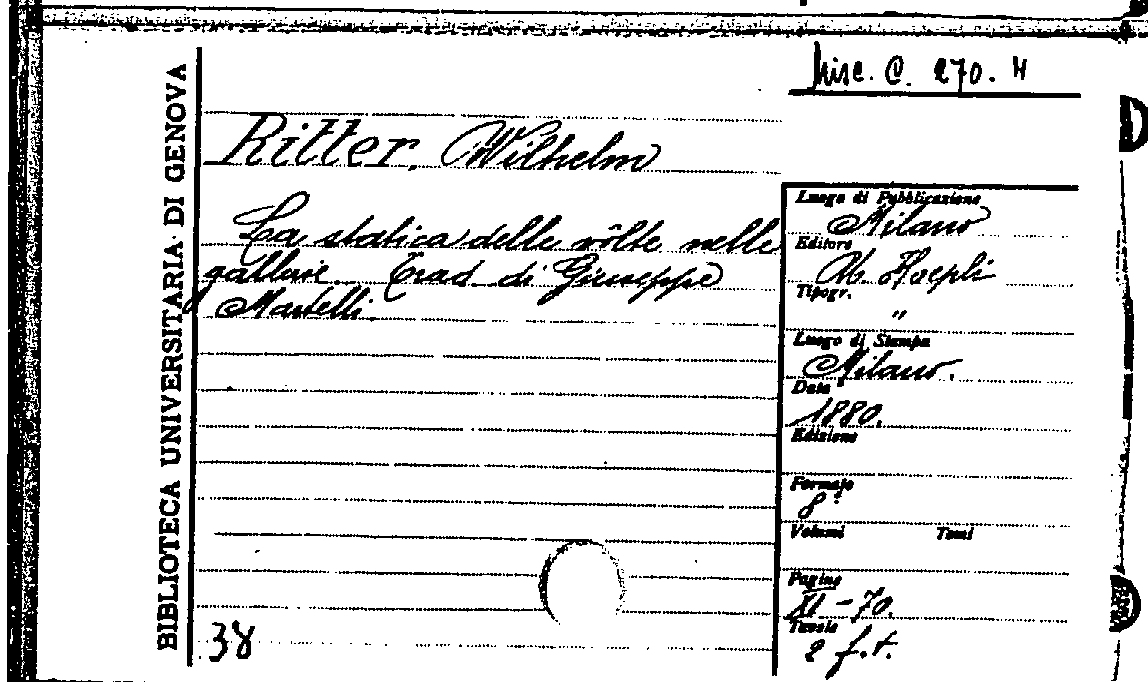 Misc. C. 270. 4
BIBLIOTECA UNIVERSITARIA DI GENOVA
Ritter, Wilhelm
La statica delle vôlte nelle
gallerie. Trad di Giuseppe
Martelli.
38
Luogo di Pubblicazione
Milano
Editore
U. Hoepli
Tipogr.
"
Luogo di Stampa
Milano.
Data
1880.
Edizione
Formato
8°
Volumi Tomi
Pagine
XI - 70.
Tavole
2 f.t.